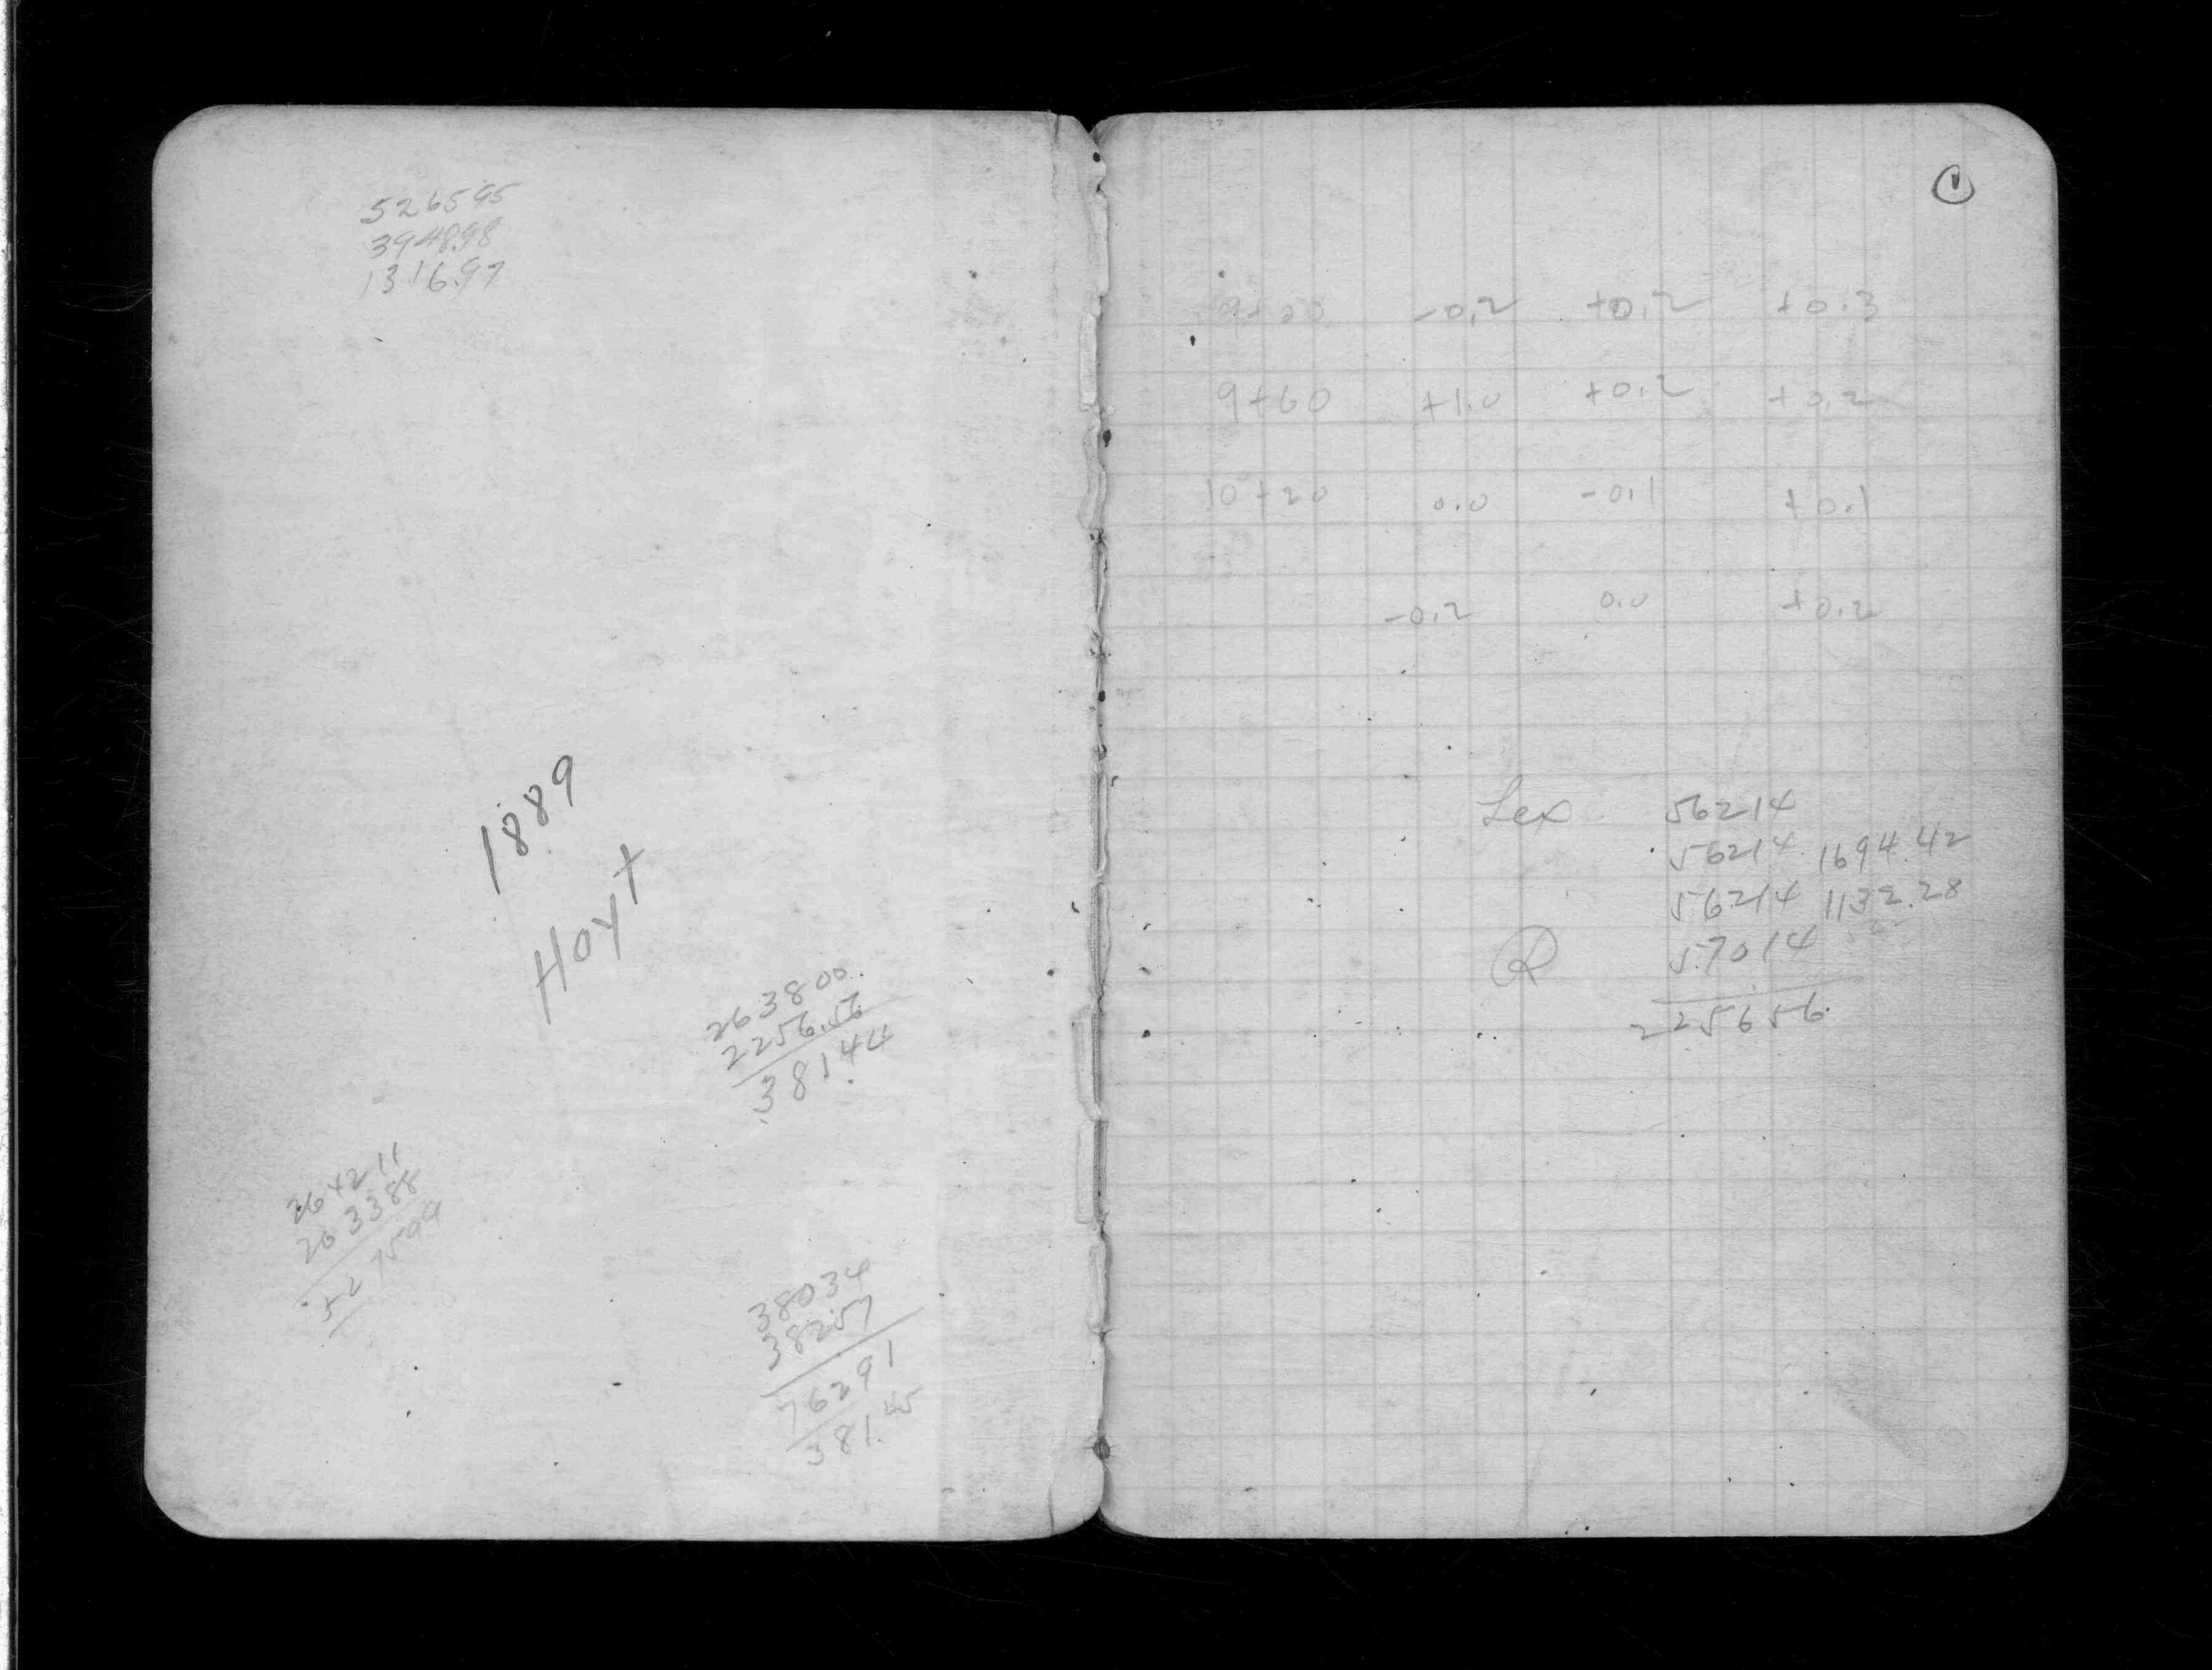 5265.95
3948.98
1316.97
1889
Hoyt
2638.00
2256.56
381.44
264211
263388
527599
38034
38257
76291
381.45
1
9+00 -0.2 +0.2 +0.3
9+60 +1.0 +0.2 +0.2
10+20 0.0 -0.1 +0.1
-0.2 0.0 +0.2
Lex 56214
56214 1694.42
56214 1132.28
R 57014
225656